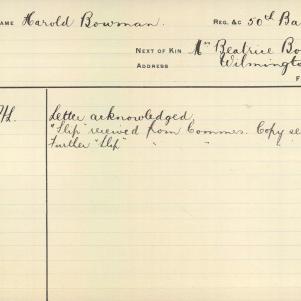 NAME Harold Bowman. REG. &C 50th Ba
NEXT OF KIN Mrs Beatrice Bo
ADDRESS Wilmingto
F
Letter acknowledged,
"Slip" received from Commee. Copy se
Further "Slip" " "